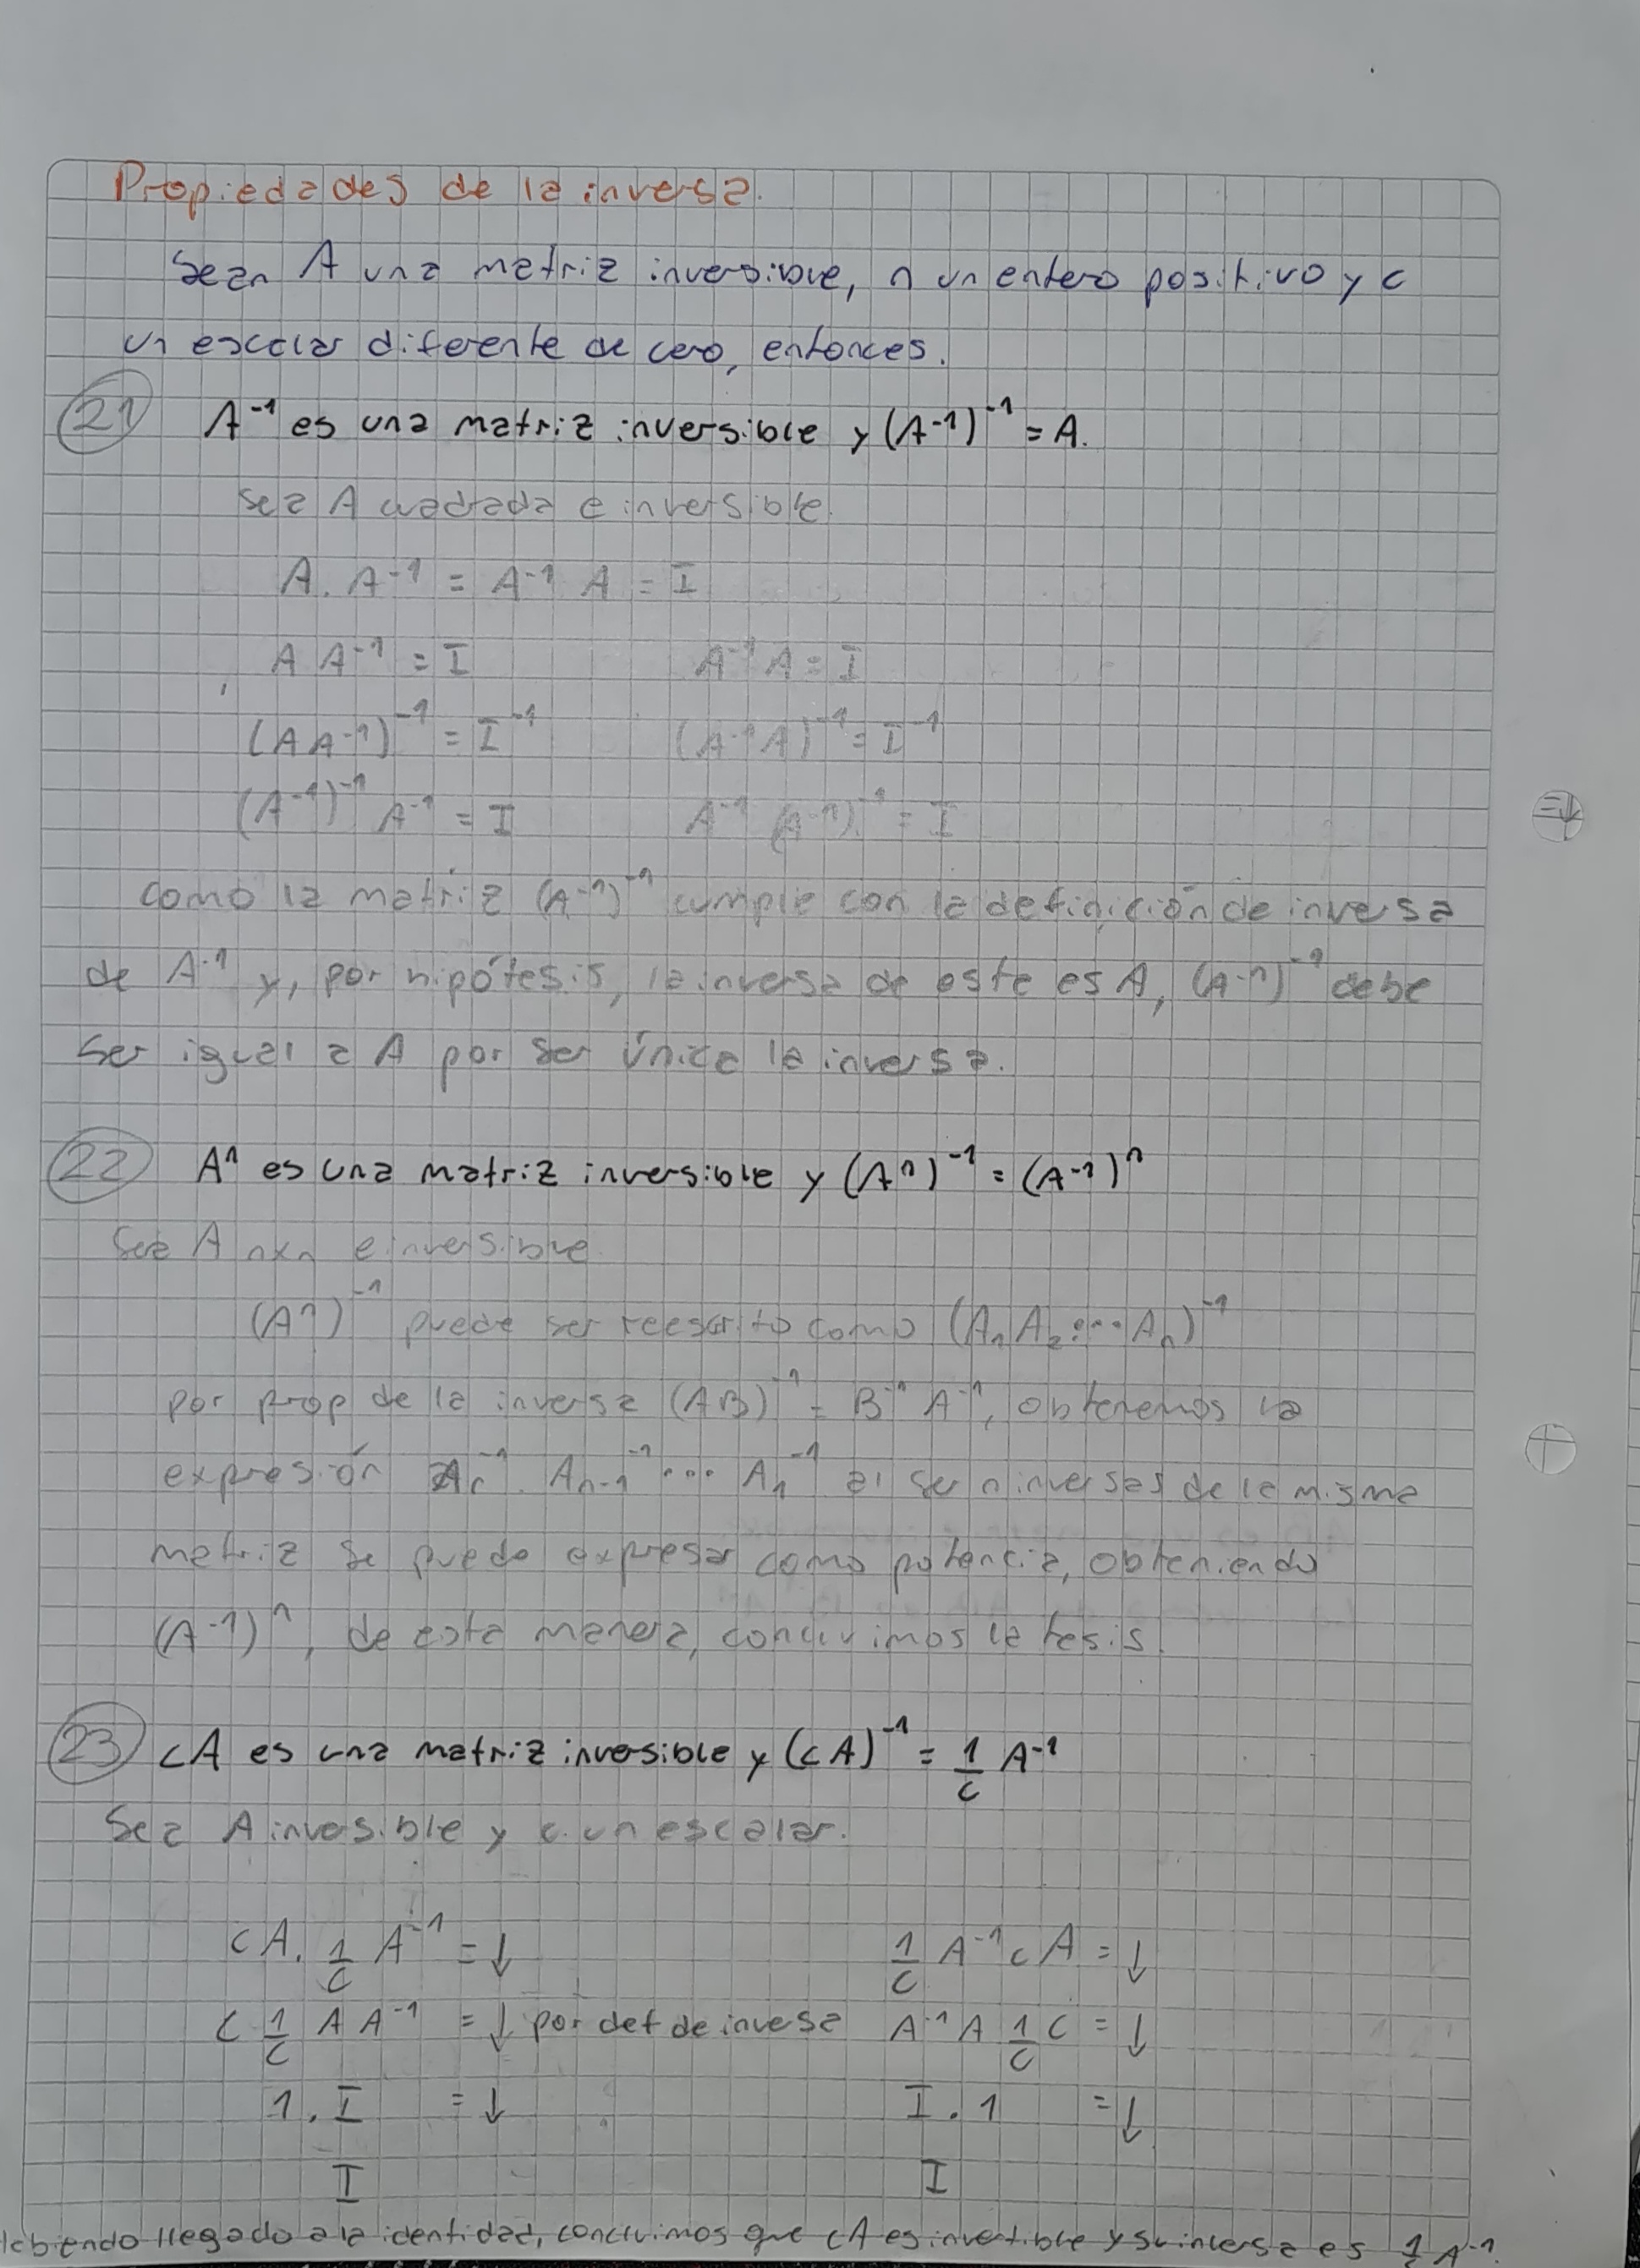 Propiedades de la inversa.
Sean A una matriz inversible, n un entero positivo y c
un escalar diferente de cero, entonces.
21 A⁻¹ es una matriz inversible y (A⁻¹)⁻¹ = A.
Sea A cuadrada e inversible.
A. A⁻¹ = A⁻¹ A = I
A A⁻¹ = I A⁻¹ A = I
(A A⁻¹)⁻¹ = I⁻¹ (A⁻¹ A)⁻¹ = I⁻¹
(A⁻¹)⁻¹ A⁻¹ = I A⁻¹ (A⁻¹)⁻¹ = I
como la matriz (A⁻¹)⁻¹ cumple con la definición de inversa
de A⁻¹ y, por hipótesis, la inversa de este es A, (A⁻¹)⁻¹ debe
ser igual a A por ser única la inversa.
22 Aⁿ es una matriz inversible y (Aⁿ)⁻¹ = (A⁻¹)ⁿ
Sea A nxn e inversible
(Aⁿ)⁻¹ puede ser reescrito como (A₁ A₂ ... Aₙ)⁻¹
por prop de la inversa (AB)⁻¹ = B⁻¹ A⁻¹, obtenemos la
expresión Aₙ⁻¹. Aₙ₋₁⁻¹ ... A₁⁻¹ al ser n inversas de la misma
matriz se puede expresar como potencia, obteniendo
(A⁻¹)ⁿ, de esta manera, concluimos la tesis.
23 cA es una matriz inversible y (cA)⁻¹ = 1/c A⁻¹
Sea A inversible y c un escalar.
cA. 1/c A⁻¹ = ↓ 1/c A⁻¹ c A = ↓
c 1/c A A⁻¹ = ↓ por def de inversa A⁻¹ A 1/c c = ↓
1. I = ↓ I . 1 = ↓
I I
llegado a la identidad, concluimos que cA es invertible y su inversa es 1/c A⁻¹